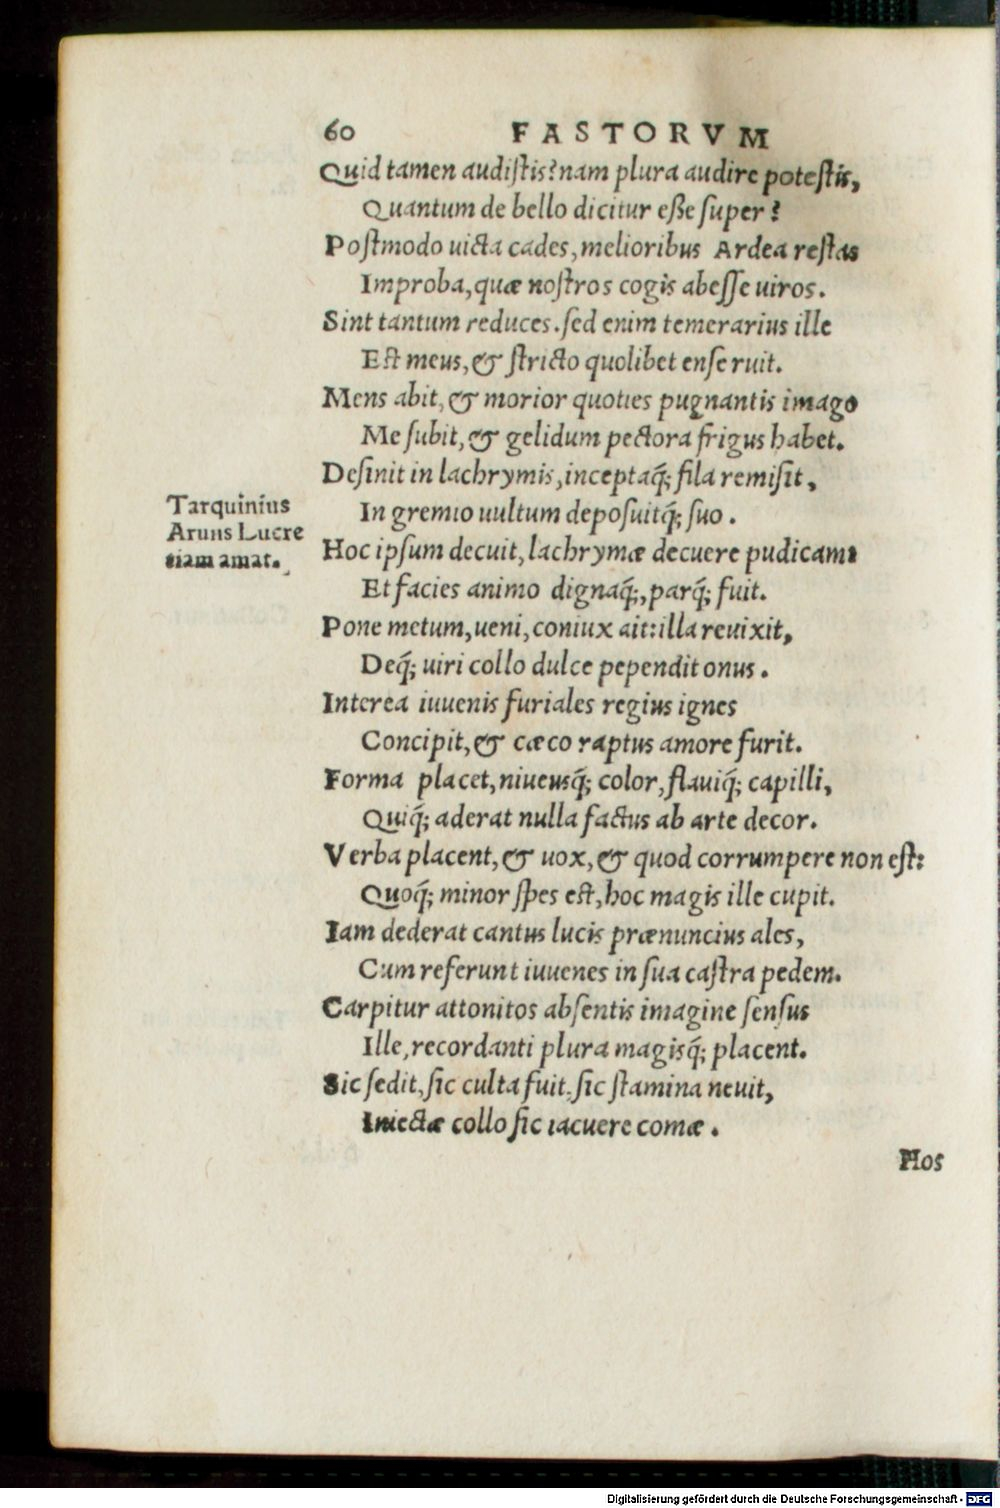 60 FASTORVM
Quid tamen audiſtis? nam plura audire poteſtis,
Quantum de bello dicitur eſſe ſuper?
Poſtmodo uicta cades, melioribus Ardea reſtas
Improba, quæ noſtros cogis abeſſe uiros.
Sint tantum reduces. ſed enim temerarius ille
Eſt meus, & ſtricto quolibet enſe ruit.
Mens abit, & morior quoties pugnantis imago
Me ſubit, & gelidum pectora frigus habet.
Deſinit in lachrymis, inceptaq́; fila remiſit,
In gremio uultum depoſuitq́; ſuo.
Tarquinius
Aruns Lucre
tiam amat.
Hoc ipſum decuit, lachrymæ decuere pudicam:
Et facies animo dignaq́;, parq́; fuit.
Pone metum, ueni, coniux ait: illa reuixit,
Deq́; uiri collo dulce pependit onus.
Interea iuuenis furiales regius ignes
Concipit, & cæco raptus amore furit.
Forma placet, niueusq́; color, flauiq́; capilli,
Quiq́; aderat nulla factus ab arte decor.
Verba placent, & uox, & quod corrumpere non eſt:
Quoq́; minor ſpes eſt, hoc magis ille cupit.
Iam dederat cantus lucis prænuncius ales,
Cum referunt iuuenes in ſua caſtra pedem.
Carpitur attonitos abſentis imagine ſenſus
Ille, recordanti plura magisq́; placent.
Sic ſedit, ſic culta fuit, ſic ſtamina neuit,
Iniectæ collo ſic iacuere comæ.
Hos
Digitalisierung gefördert durch die Deutsche Forschungsgemeinschaft - DFG